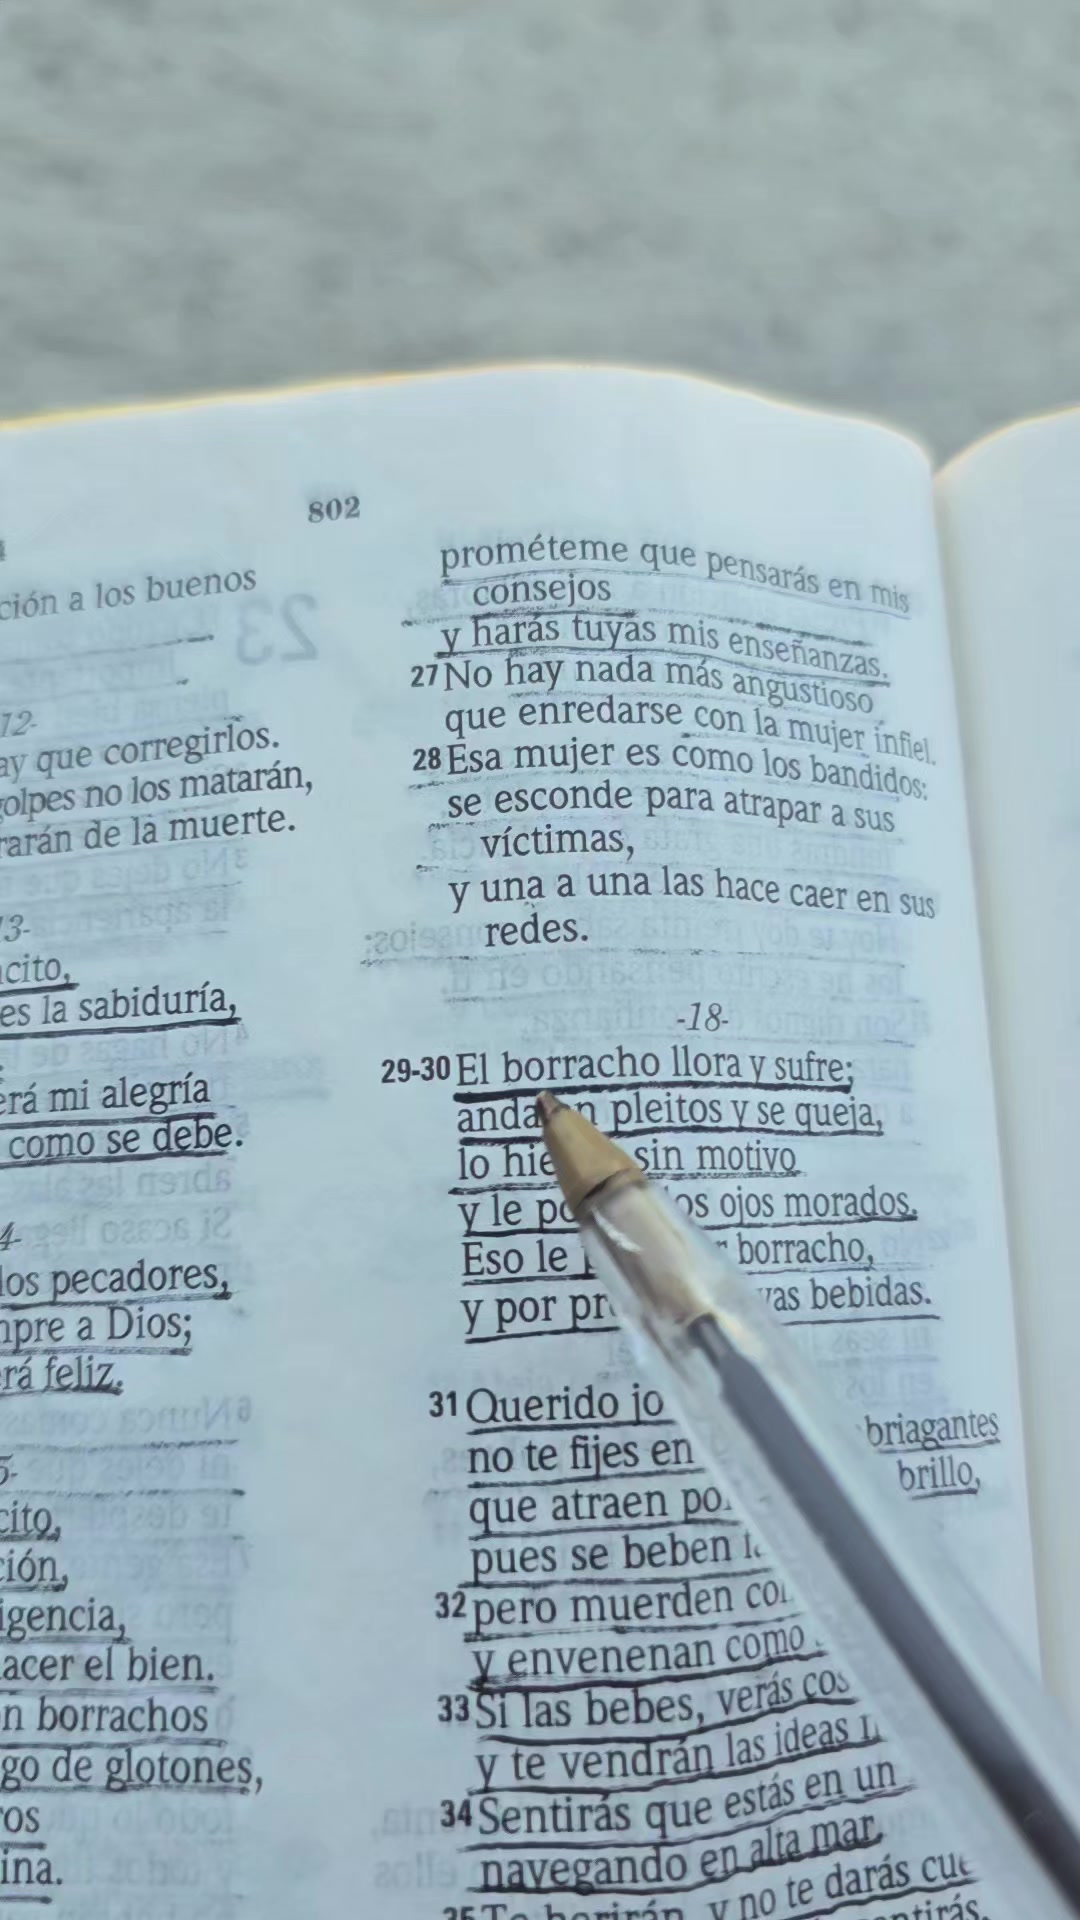 802
ción a los buenos
12-
ay que corregirlos.
golpes no los matarán,
rarán de la muerte.
13-
cito,
es la sabiduría,
erá mi alegría
como se debe.
4-
los pecadores,
mpre a Dios;
rá feliz.
5-
cito,
ción,
igencia,
acer el bien.
n borrachos
go de glotones,
ros
ina.
prométeme que pensarás en mis
consejos
y harás tuyas mis enseñanzas.
27 No hay nada más angustioso
que enredarse con la mujer infiel.
28 Esa mujer es como los bandidos:
se esconde para atrapar a sus
víctimas,
y una a una las hace caer en sus
redes.
-18-
29-30 El borracho llora y sufre;
anda n pleitos y se queja,
lo hie sin motivo
y le po os ojos morados.
Eso le borracho,
y por pr vas bebidas.
31 Querido jo
no te fijes en briagantes
que atraen po brillo,
pues se beben
32 pero muerden co
y envenenan como
33 Si las bebes, verás cos
y te vendrán las ideas
34 Sentirás que estás en un
navegando en alta mar.
35 Te herirán, y no te darás cue
entirás.